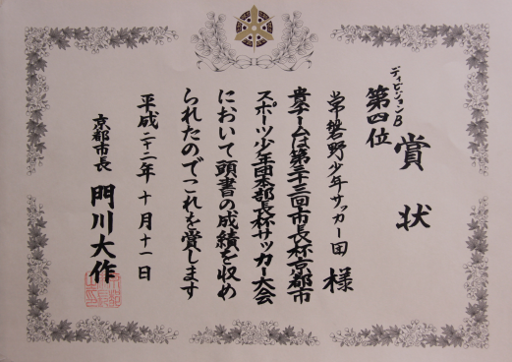 賞状
ディビジョンB
第四位
常磐野少年サッカー団 様
貴チームは第三十三回市長杯京都市
スポーツ少年団本部長杯サッカー大会
において頭書の成績を収め
られたのでこれを賞します
平成二十二年十月十一日
京都市長 門川大作